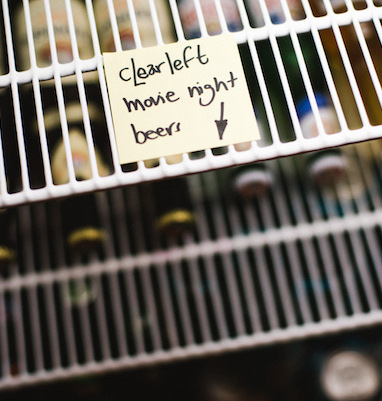 clearleft
movie night
beers ↓